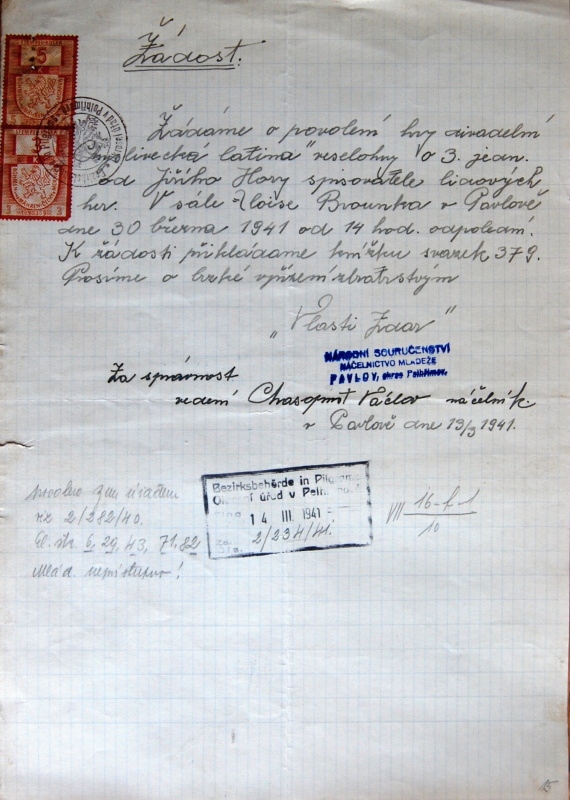 Žádost.
Žádáme o povolení hry divadelní
"Myslivecká latina" veselohry o 3. jedn.
od Jiřího Hory spisovatele lidových
her. V sále Aloise Brounka v Pavlově
dne 30 března 1941 od 14 hod. odpoledn.
K žádosti přikládáme knížku svazek 379.
Prosíme o brzké vyřízení
„Vlasti Zdar"
NÁRODNÍ SOURUČENSTVÍ
NÁČELNICTVO MLÁDEŽE
PAVLOV, okres Pelhřimov.
Za správnost
vedení Václav náčelník.
v Pavlově dne 13/3 1941.
Bezirksbehörde in Pilgrams
Okresní úřad v Pelhřimově
14 III 1941
2/234/41.
VII 16-f-1
10
povoleno zem. úřadem
viz 2/282/40.
Čl. str. 6, 29, 43, 71, 82
Mlád. nepřístupno!